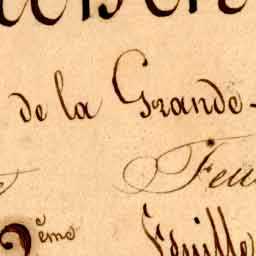 de la Grande-
Feu
2ème Feuille